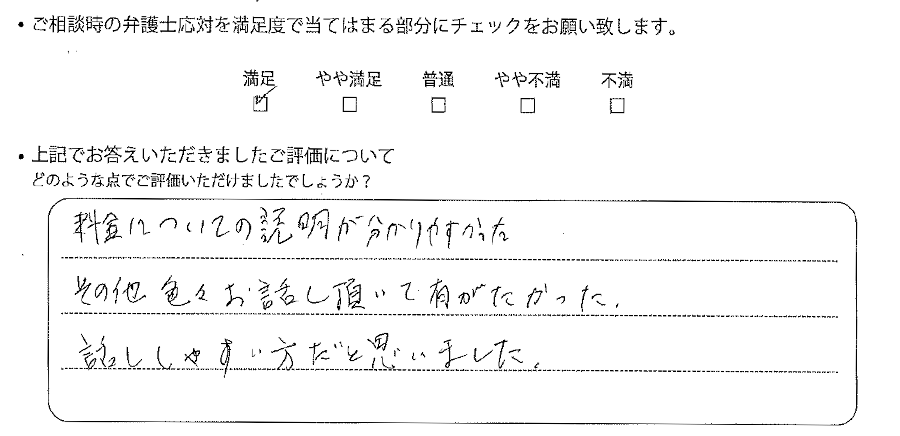 ・ご相談時の弁護士応対を満足度で当てはまる部分にチェックをお願い致します。
満足 やや満足 普通 やや不満 不満
☑ □ □ □ □
・上記でお答えいただきましたご評価について
どのような点でご評価いただけましたでしょうか？
料金についての説明が分かりやすかった
その他色々お話し頂いて有がたかった.
話ししやすい方だと思いました.